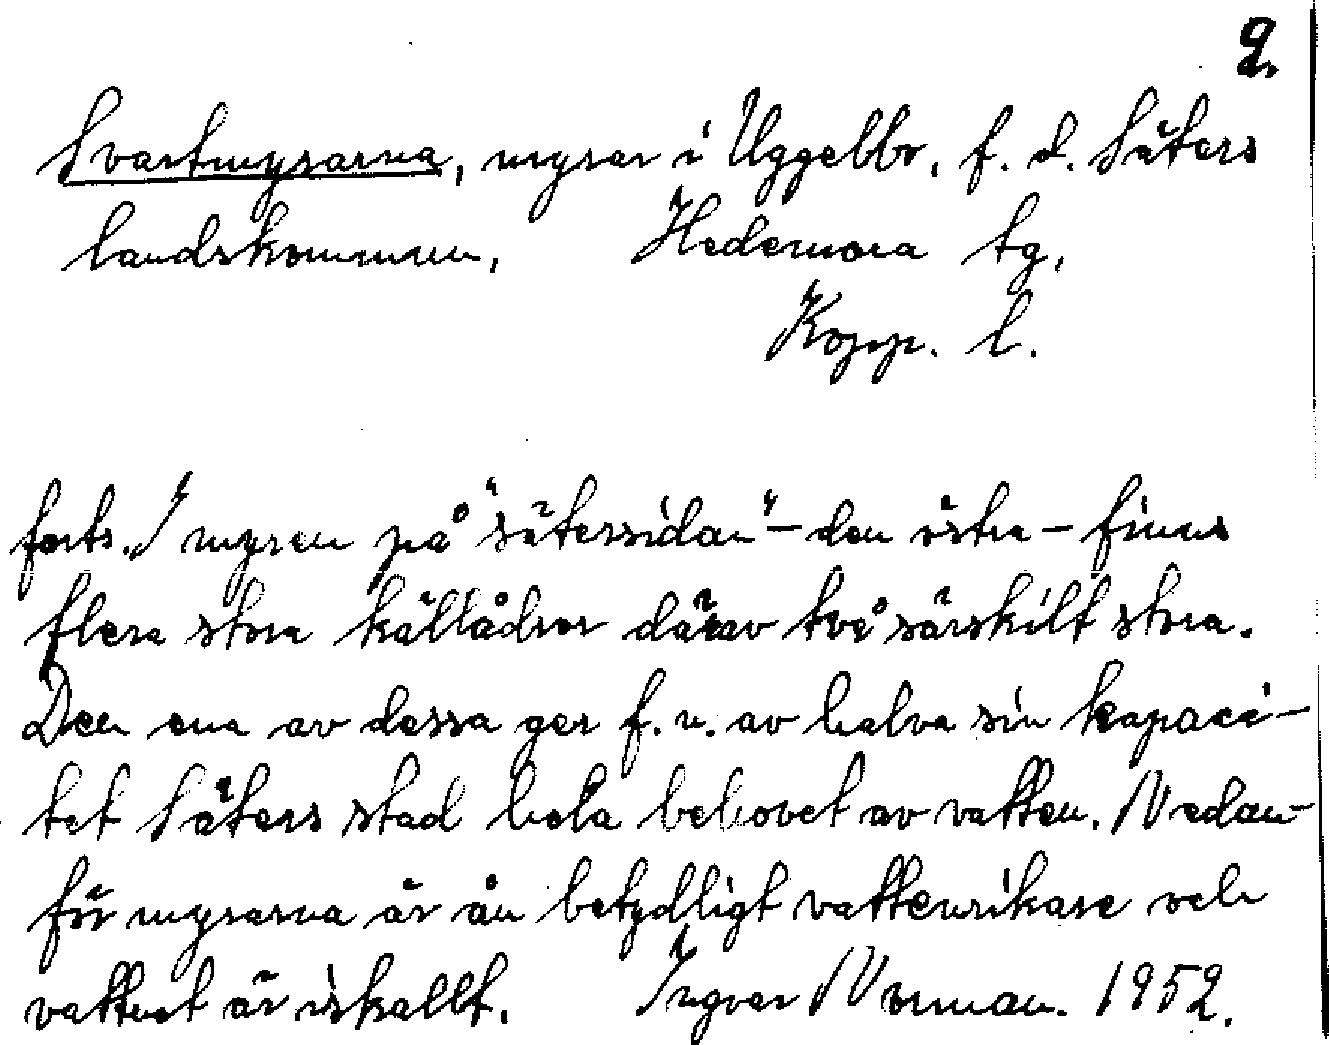 2.
Svartmyrarna, myrar i Uggelbo, f. d. Säters
landskommun, Hedemora tg,
Kopp. l.
forts. I myren på "sätersidan" - den östra - finns
flera stora källådror därav två särskilt stora.
Den ena av dessa ger f. n. av halva sin kapaci-
tet Säters stad hela behovet av vatten. Nedan-
för myrarna är ån betydligt vattenrikare och
vattnet är iskallt. Ingvar Norman. 1952.